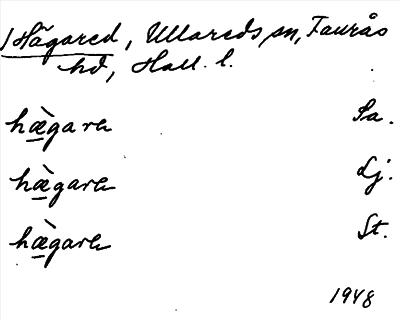 Hägared, Ullareds sn, Faurås
hd, Hall. l.
hæ̀gara Sa.
hæ̀gara Lj.
hæ̀gara St.
1948